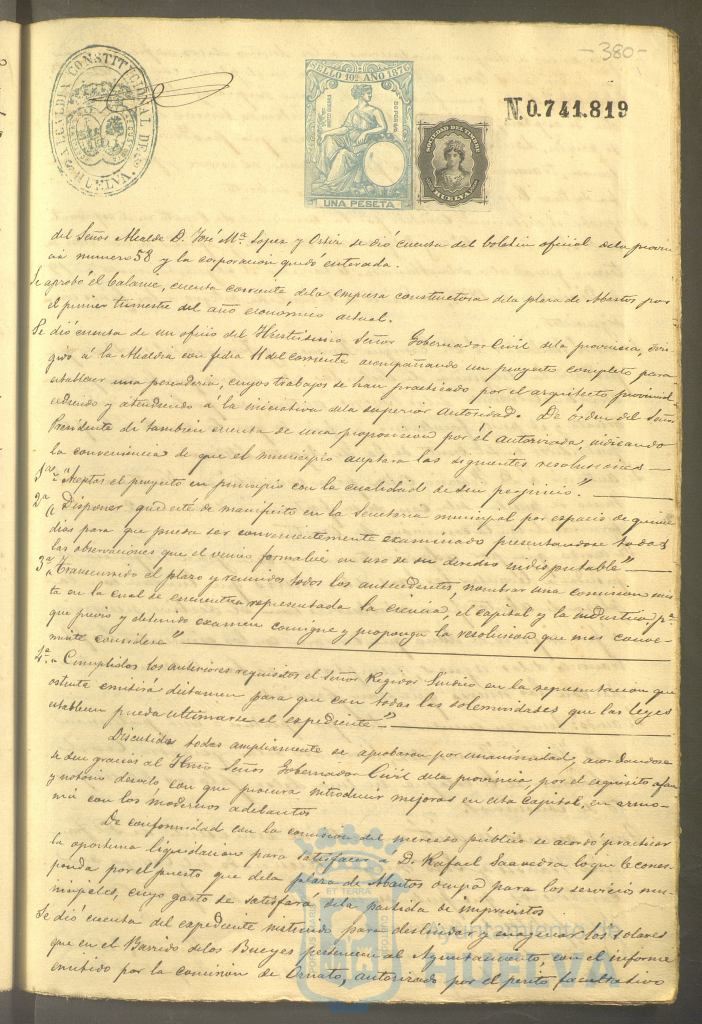 -380-
ALCALDIA CONSTITUCIONAL DE HUELVA.
SELLO 10º AÑO 1876
UNA PESETA
SOCIEDAD DEL TIMBRE
HUELVA
N.0.741.819
del Señor Alcalde D. José Mª Lopez y Ortiz se dió cuenta del boletin oficial dela provin
cia numero 58 y la corporacion quedó enterada.
Se aprobó el balance, cuenta corriente dela empresa constructora dela plaza de Abastos por
el primer trimestre del año económico actual.
Se dió cuenta de un oficio del Ilustrisimo Señor Gobernador Civil dela provincia, diri
gido á la Alcaldia con fecha 11 del corriente acompañando un proyecto completo para
establecer una pescaderia, cuyos trabajos se han practicado por el arquitecto provincial
y atendiendo á la iniciativa dela superior autoridad. De órden del Señor
Presidente dí tambien cuenta de una proposicion por él autorizada, indicando
la conveniencia de que el municipio aceptara las siguientes resoluciones
1ª "Aceptar el proyecto en principio con la cualidad de sin perjuicio."
2ª "Disponer que esté de manifiesto en la Secretaria municipal por espacio de quince
dias para que pueda ser convenientemente examinado presentandose todas
las observaciones que el vecino formalice en uso de su derecho indisputable"
3ª "Transcurrido el plazo y reunidos todos los antecedentes, nombrar una comision mis
ta en la cual se encuentre representada la ciencia, el capital y la industria, pª
que previo y detenido examen consigne y proponga la resolucion que mas conve-
niente considere"
4ª "Cumplidos los anteriores requisitos el Señor Regidor Sindico en la representacion que
ostenta emitirá dictamen para que con todas las solemnidades que las leyes
establecen pueda ultimarse el expediente"
Discutidas todas ampliamente se aprobaron por unanimidad, acordandose
se den gracias al Ilmo Señor Gobernador Civil dela provincia, por el esquisito afan
y notorio desvelo con que procura introducir mejoras en esta Capital, en armo-
nia con los modernos adelantos
De conformidad con la comision del mercado público se acordó practicar
la oportuna liquidacion para satisfacer a D. Rafael Saavedra lo que le corres
ponda por el puesto que dela plaza de Abastos ocupa para los servicios mu-
nicipales, cuyo gasto se satisfará dela partida de imprevistos
Se dió cuenta del expediente instruido para deslindar y enagenar los solares
que en el Barrio delos Bueyes pertenecen al Ayuntamiento, con el informe
emitido por la comision de Ornato, autorizado por el perito facultativo
Ayuntamiento de
HUELVA